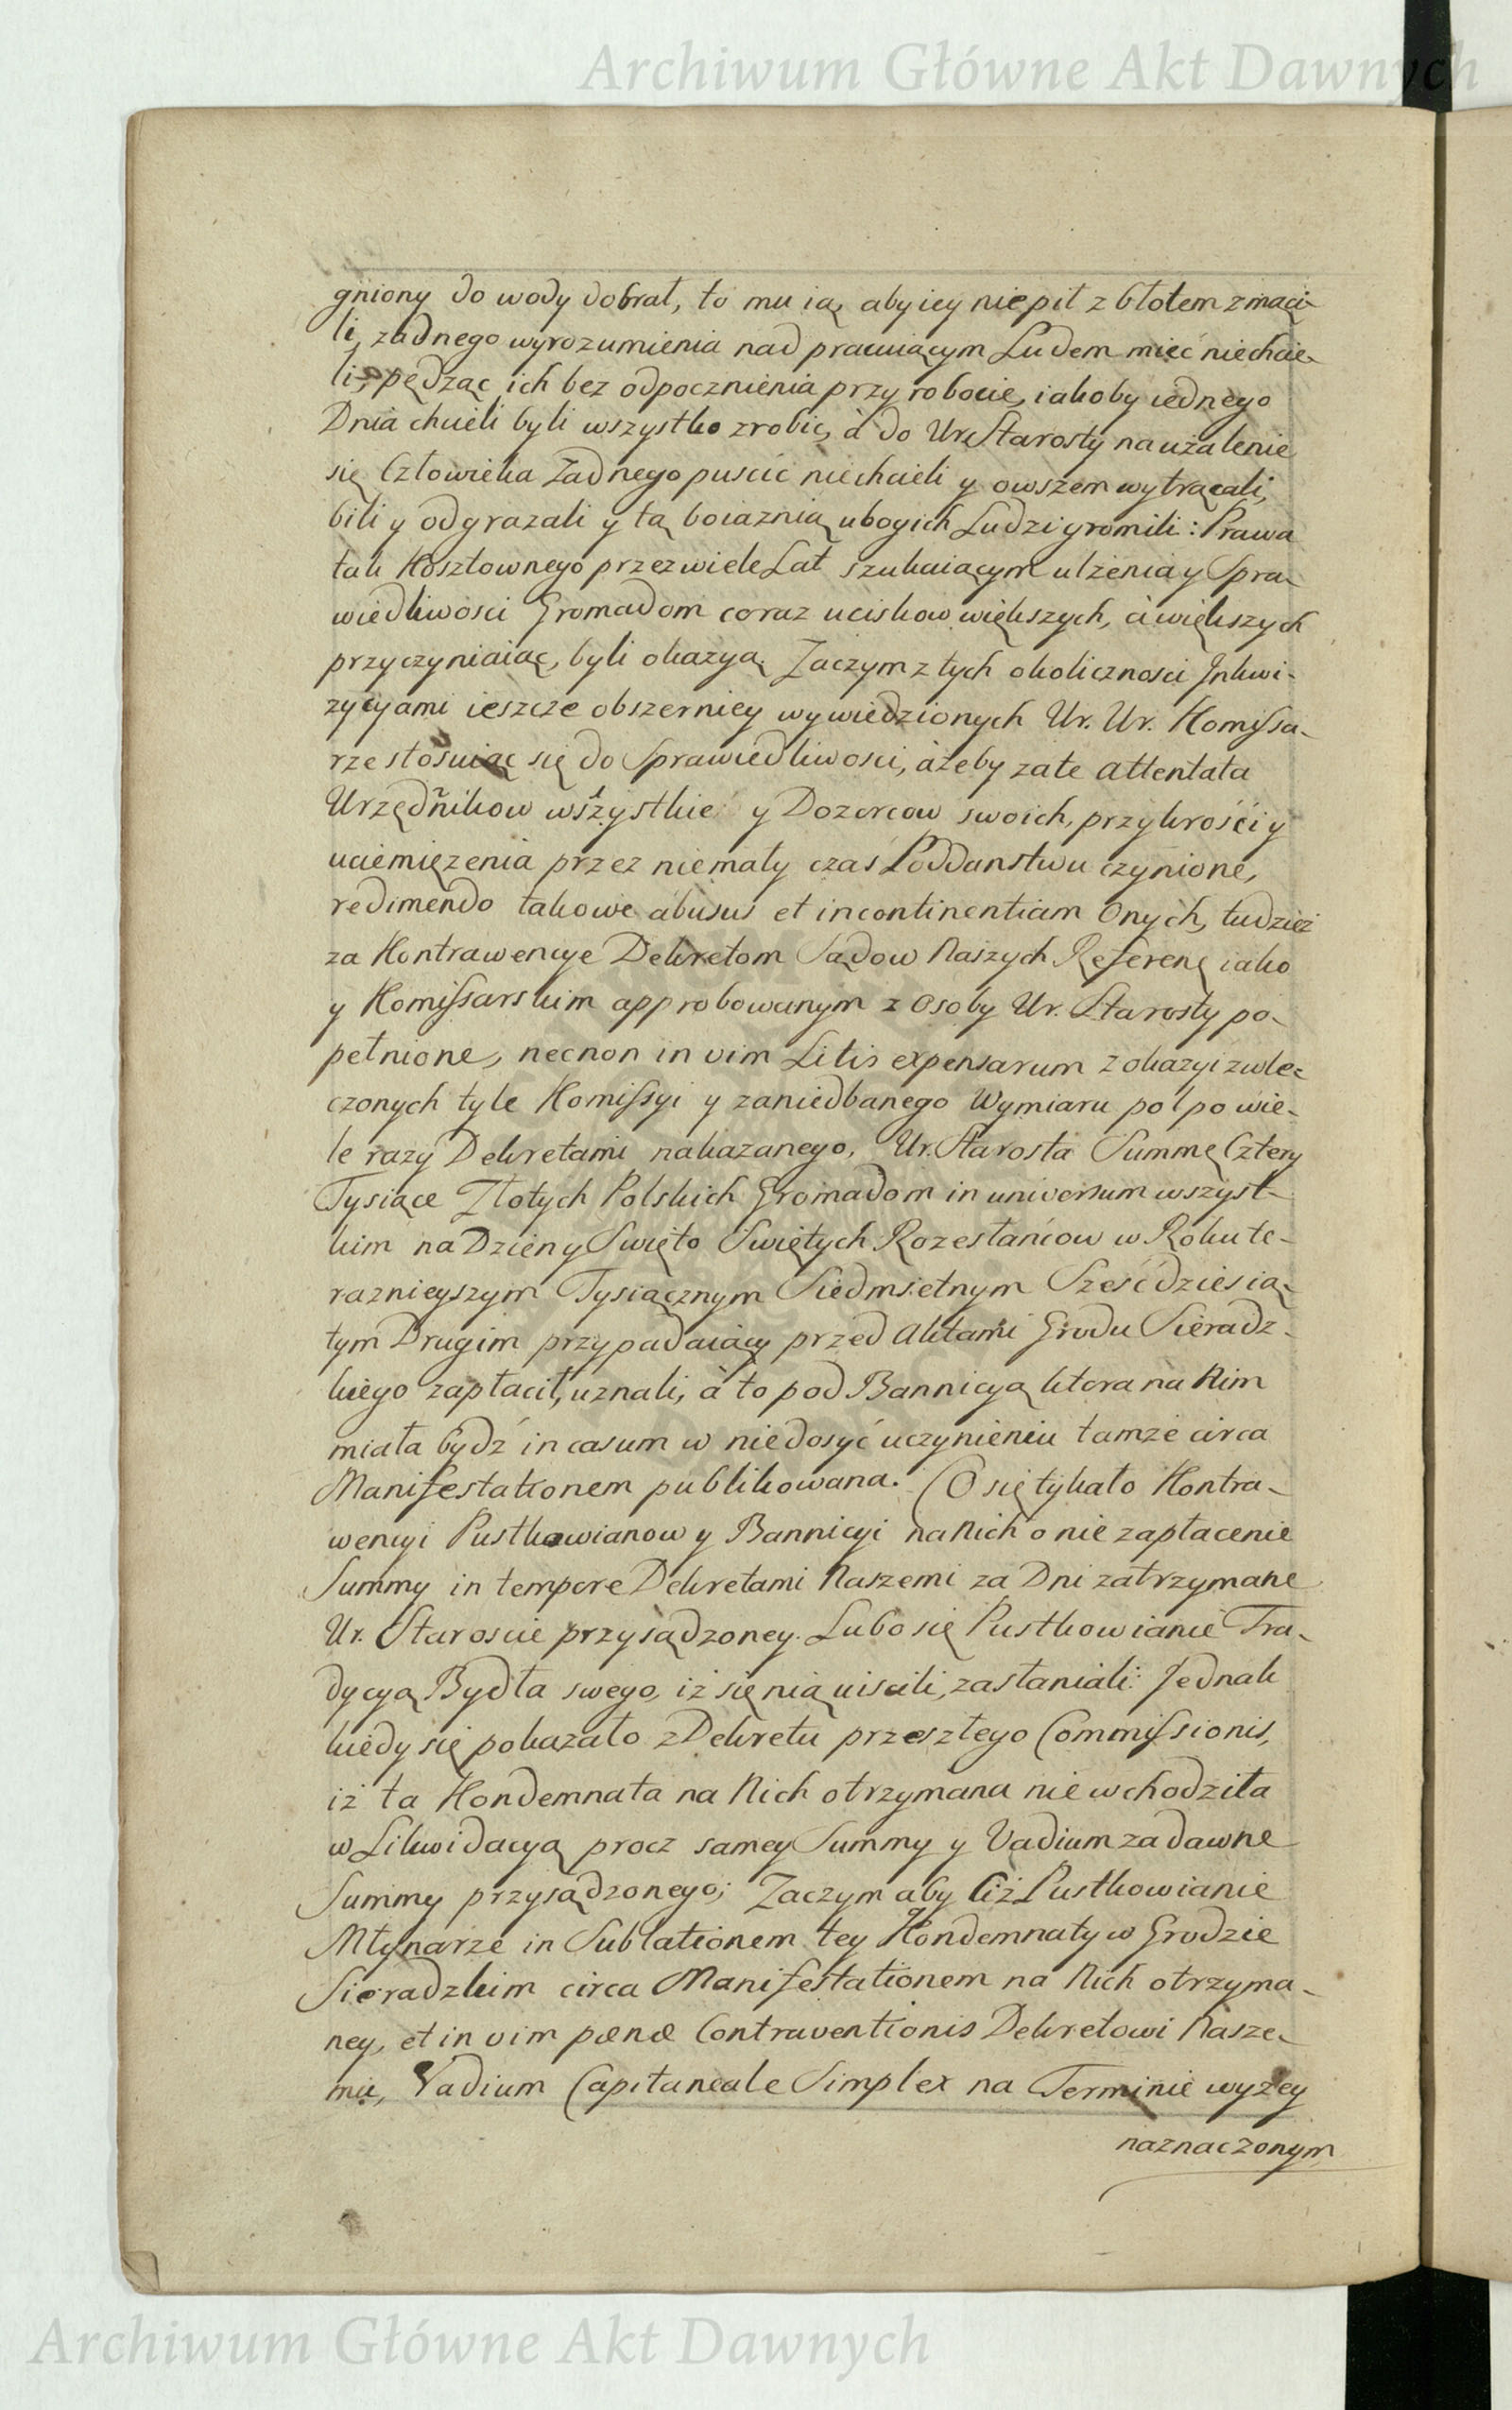 Archiwum Główne Akt Dawnych
gniony do wody dobrał, to mu ią, aby iey nie pił z błotem zmąci-
li, zadnego wyrozumienia nad pracuiącym Ludem mieć niechcie-
li, pędząc ich bez odpocznienia przy robocie, iakoby iednego
Dnia chcieli byli wszystko zrobić, à do Ur. Starosty na użalenie
się Człowieka Zadnego puscić niechcieli y owszem wytrącali,
bili y odgrazali y tą boiaznią ubogich Ludzi gromili: Prawa
tak Kosztownego przez wiele Lat szukaiącym ulżenia y Spra-
wiedliwosci Gromadom coraz uciskow większych, à większych
przyczyniaiąc, byli okazyą. Zaczym z tych okolicznosci Inkwi-
zycyami ieszcze obszerniey wywiedzionych Ur. Ur. Komissa-
rze stosuiąc się do Sprawiedliwosci, àżeby zate attentata
Urzędnikow wszystkie y Dozorcow swoich, przykrości y
uciemięzenia przez niemały czas Poddanstwu czynione,
redimendo takowe abusus et incontinentiam Onych, tudzież
za Kontrawencye Dekretom Sądow Naszych Referen. iako
y Komissarskim approbowanym z Osoby Ur. Starosty po-
pełnione, necnon in vim Litis expensarum z okazyi zwle-
czonych tyle Komissyi y zaniedbanego Wymiaru pol po wie-
le razy Dekretami nakazanego, Ur. Starosta Summę Cztery
Tysiące Złotych Polskich Gromadom in universum wszyst-
kim na Dzien y Swięto Swiętych Rozesłańcow w Roku te-
raznieyszym Tysiącznym Siedmsetnym Sześćdziesią-
tym Drugim przypadaiący przed Aktami Grodu Sieradz-
kiego zapłacił, uznali, à to pod Bannicyą ktora na Nim
miała bydź in casum w niedosyć uczynieniu tamże circa
Manifestationem publikowana. Co się tykało Kontra-
wencyi Pustkowianow y Bannicyi na Nich o nie zapłacenie
Summy in tempore Dekretami Naszemi za Dni zatrzymane
Ur. Staroscie przysądzoney. Lubo się Pustkowianie Tra-
dycyą Bydła swego, iż się nią uiscili, zasłaniali: Jednak
kiedy się pokazało z Dekretu przeszłego Commissionis,
iż ta Kondemnata na Nich otrzymana nie wchodziła
w Likwidacyą procz samey Summy y Vadium za dawne
Summy przysądzonego; Zaczym aby Ciż Pustkowianie
Młynarze in Sublationem tey Kondemnaty w Grodzie
Sieradzkim circa Manifestationem na Nich otrzyma-
ney, et in vim pœnæ Contraventionis Dekretowi Nasze-
mu, Vadium Capitaneale Simplex na Terminie wyżey
naznaczonym
Archiwum Główne Akt Dawnych